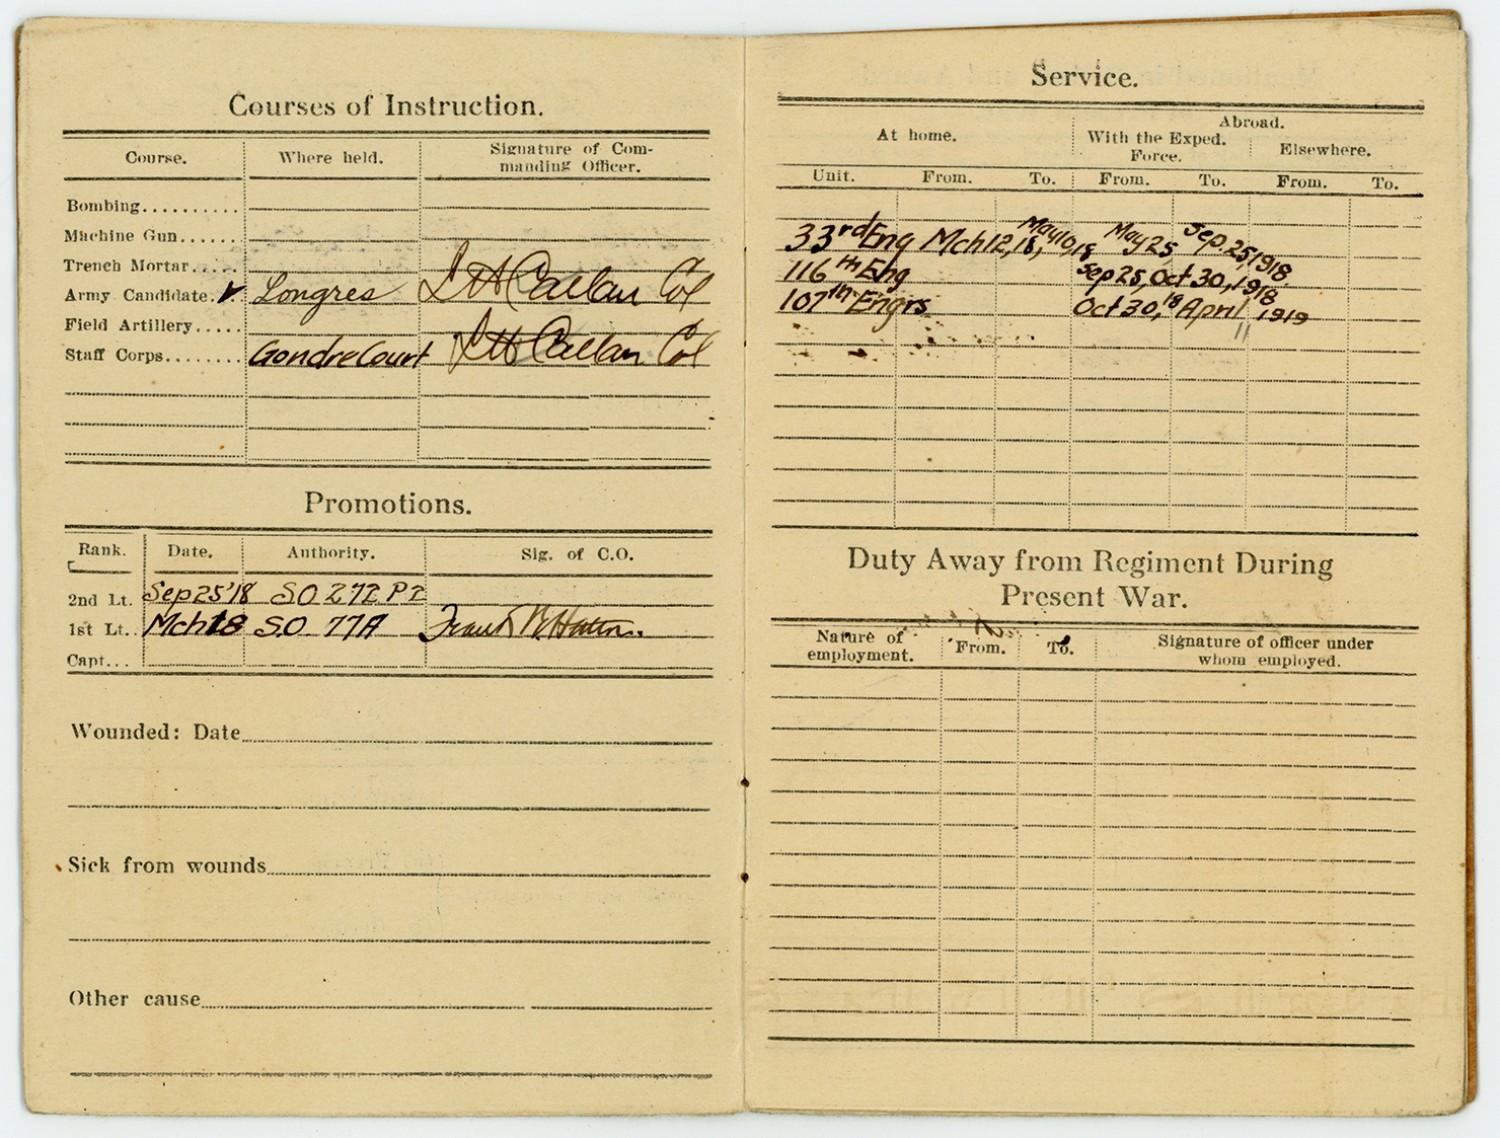 Courses of Instruction.
Course. Where held. Signature of Com-
manding Officer.
Bombing..........
Machine Gun.......
Trench Mortar.....
Army Candidate. ✓ Longres L H Callan Col
Field Artillery.....
Staff Corps........ GondreCourt L H Callan Col
Promotions.
Rank. Date. Authority. Sig. of C.O.
2nd Lt. Sep 25 '18 S.O 272 P I
1st Lt.. Mch 18 S.O. 77A Frank
Capt...
Wounded: Date
Sick from wounds
Other cause
Service.
At home. Abroad.
With the Exped.
Force. Elsewhere.
Unit. From. To. From. To. From. To.
33rd Eng Mch 12, 18, May 10, 18 May 25 Sep. 25, 1918.
116th Eng Sep 25, Oct 30, 1918
107th Engrs Oct 30, 18 April 11 1919
Duty Away from Regiment During
Present War.
Nature of
employment. From. To. Signature of officer under
whom employed.